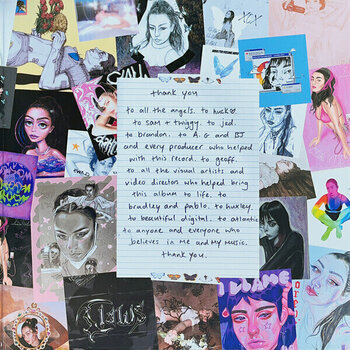 XOX
thank you
to all the angels. to huck
to sam + twiggy. to jed.
to brandon. to A.G and BJ
and every producer who helped
with this record. to geoff.
to all the visual artists and
video directors who helped bring
this album to life. to
bradley and pablo. to huxley.
to beautiful digital. to atlantic
to anyone and everyone who
believes in me and my music.
thank you.
claws